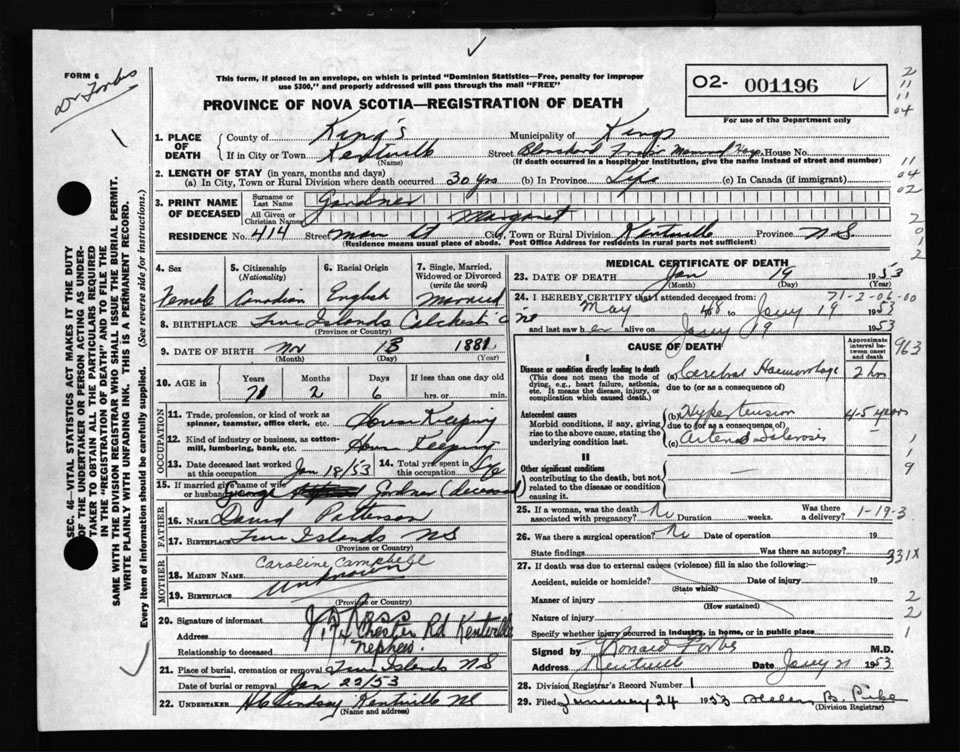 FORM 6
Dr Forbes
This form, if placed in an envelope, on which is printed "Dominion Statistics—Free, penalty for improper
use $300," and properly addressed will pass through the mail "FREE"
PROVINCE OF NOVA SCOTIA—REGISTRATION OF DEATH
02- 001196
For use of the Department only
2
11
04
1. PLACE OF DEATH
County of King's Municipality of Kings
If in City or Town Kentville Street Blanchard Fraser Memorial Hosp. House No.
(Name) (If death occurred in a hospital or institution, give the name instead of street and number)
2. LENGTH OF STAY (in years, months and days)
(a) In City, Town or Rural Division where death occurred 30 yrs (b) In Province Life (c) In Canada (if immigrant)
11
04
02
3. PRINT NAME OF DECEASED
Surname or Last Name Gardner
All Given or Christian Names Margaret
RESIDENCE No. 414 Street Main St City, Town or Rural Division Kentville Province N S
(Residence means usual place of abode. Post Office Address for residents in rural parts not sufficient)
2
0
1
2
4. Sex Female
5. Citizenship (Nationality) Canadian
6. Racial Origin English
7. Single, Married, Widowed or Divorced (write the word) Married
8. BIRTHPLACE Five Islands Colchester Co NS
(Province or Country)
9. DATE OF BIRTH Nov 13 1881
(Month) (Day) (Year)
10. AGE in Years 71 Months 2 Days 6 If less than one day old
hrs. or min.
OCCUPATION
11. Trade, profession, or kind of work as spinner, teamster, office clerk, etc. House Keeping
12. Kind of industry or business, as cotton-mill, lumbering, bank, etc. Home Keeping
13. Date deceased last worked at this occupation Jan 18/53 14. Total yrs. spent in this occupation Life
15. If married give name of wife or husband George Gardner (deceased)
FATHER
16. NAME David Patterson
17. BIRTHPLACE Five Islands NS
(Province or Country)
MOTHER
18. MAIDEN NAME Caroline Campbell
19. BIRTHPLACE Unknown
(Province or Country)
20. Signature of informant J. Ross
Address Chester Rd Kentville
Relationship to deceased Nephew
21. Place of burial, cremation or removal Five Islands NS
Date of burial or removal Jan 22/53
22. UNDERTAKER Lindsay Kentville NS
(Name and address)
MEDICAL CERTIFICATE OF DEATH
23. DATE OF DEATH Jan 19 1953
(Month) (Day)
71-2-06-00
24. I HEREBY CERTIFY that I attended deceased from:
May 1948 to Jany 19 1953
and last saw her alive on Jany 19 1953
CAUSE OF DEATH
Approximate interval between onset and death
963
I
Disease or condition directly leading to death
(This does not mean the mode of dying, e.g., heart failure, asthenia, etc. It means the disease, injury, or complication which caused death.)
(a) Cerebral Haemorrhage 2 hrs
due to (or as a consequence of)
Antecedent causes
Morbid conditions, if any, giving rise to the above cause, stating the underlying condition last.
(b) Hypertension 4-5 years
due to (or as a consequence of)
(c) Arterio Sclerosis
II
Other significant conditions
contributing to the death, but not related to the disease or condition causing it.
1
1
9
25. If a woman, was the death associated with pregnancy? No Duration weeks. Was there a delivery?
1-19-3
26. Was there a surgical operation? No Date of operation 19
State findings Was there an autopsy?
331X
27. If death was due to external causes (violence) fill in also the following:
Accident, suicide or homicide? Date of injury 19
(State which)
Manner of injury 2
(How sustained)
Nature of injury 2
Specify whether injury occurred in industry, in home, or in public place 1
Signed by Donald Forbes M.D.
Address Kentville Date Jany 21 1953
28. Division Registrar's Record Number 1
29. Filed January 24 1953 Helen B. Pike
(Division Registrar)
SEC. 46—VITAL STATISTICS ACT MAKES IT THE DUTY
OF THE UNDERTAKER OR PERSON ACTING AS UNDER-
TAKER TO OBTAIN ALL THE PARTICULARS REQUIRED
IN THE "REGISTRATION OF DEATH" AND TO FILE THE
SAME WITH THE DIVISION REGISTRAR WHO SHALL ISSUE THE BURIAL PERMIT.
WRITE PLAINLY WITH UNFADING INK. THIS IS A PERMANENT RECORD.
Every item of information should be carefully supplied. (See reverse side for instructions.)